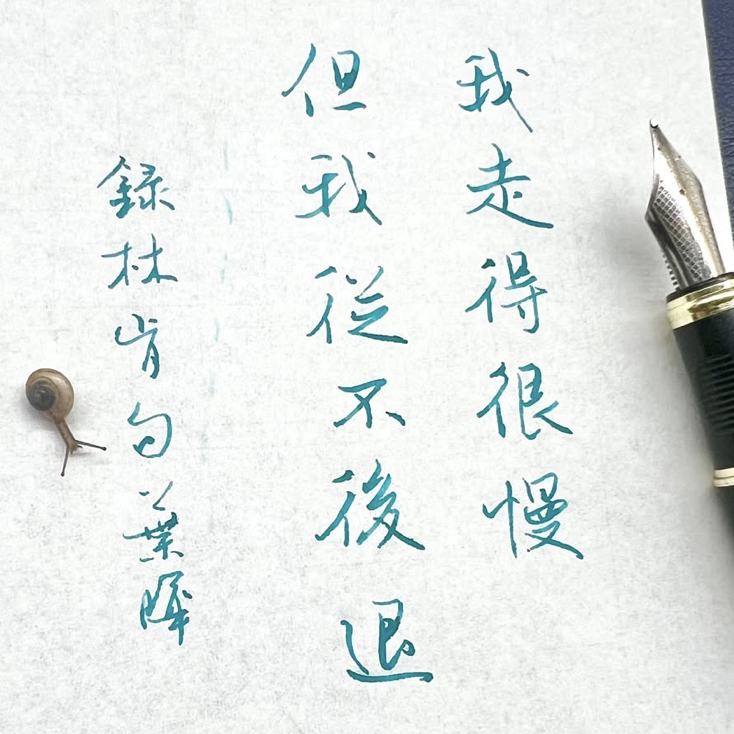 我走得很慢
但我從不後退
錄林肯句葉曄